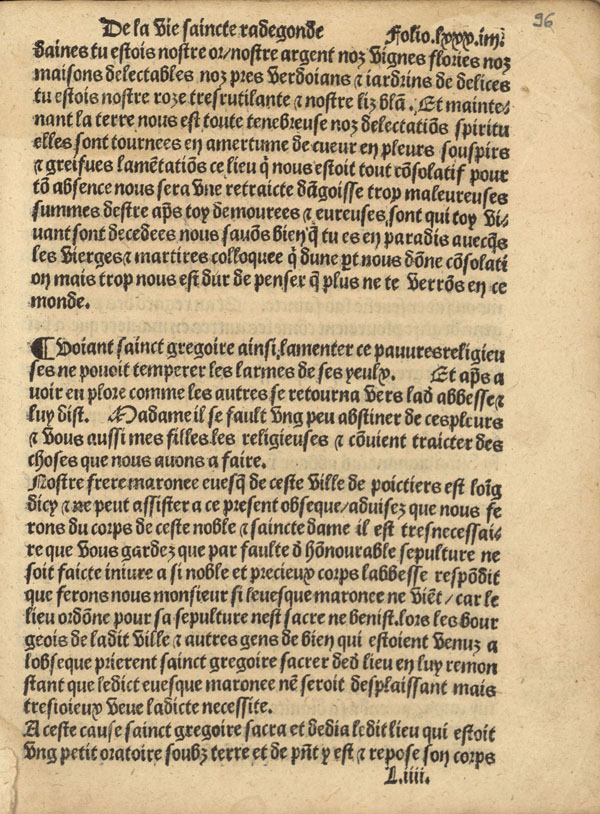 96
De la Vie saincte radegonde Folio.lxxx.iiii.
daines tu estois nostre or/nostre argent noz vignes flories noz
maisons delectables noz pres verdoians ⁊ iardrins de delices
tu estois nostre roze tresrutilante ⁊ nostre liz blã. Et mainte⸗
nant la terre nous est toute tenebreuse noz delectatiõs spiritu
elles sont tournees en amertume de cueur en pleurs souspirs
⁊ greifues lamẽtatiõs ce lieu q̃ nous estoit tout cõsolatif pour
tõ absence nous sera vne retraicte dãgoisse trop maleureuses
summes destre ap̃s toy demourees ⁊ eureuses, sont qui toy vi⸗
uant sont decedees nous sauõs bien q̃ tu es en paradis auecq̃s
les vierges ⁊ martires colloquee q̃ dune p̃t nous dõne cõsolati
on mais trop nous est dur de penser q̃ plus ne te verrõs en ce
monde.
¶ Voiant sainct gregoire ainsi, lamenter ce pauures religieu
ses ne pouoit temperer les larmes de ses yeulx. Et ap̃s a
voir en plore comme les autres se retourna vers lad abbesse ⁊
luy dist. Madame il se fault vng peu abstiner de ces pleurs
⁊ vous aussi mes filles les religieuses ⁊ cõuient traicter des
choses que nous auons a faire.
Nostre frere maronee euesq̃ de ceste ville de poictiers est loĩg
dicy ⁊ ne peut assister a ce present obseque/aduisez que nous fe
rons du corps de ceste noble ⁊ saincte dame il est tresnecessai⸗
re que vous gardez que par faulte d̃ hõnourable sepulture ne
soit faicte iniure a si noble et precieux corps labbesse respõdit
que ferons nous monsieur si leuesque maronee ne viẽt/ car le
lieu ordõne pour sa sepulture nest sacre ne benist. lors les bour
geois de ladit ville ⁊ autres gens de bien qui estoient venuz a
lobseque prierent sainct gregoire sacrer ded lieu en luy remon
stant que ledict euesque maronee nẽ seroit desplaissant mais
tresioieux veue ladicte necessite.
A ceste cause sainct gregoire sacra et dedia ledit lieu qui estoit
vng petit oratoire soubz terre et de p̃nt y est ⁊ repose son corps
L.iiii.